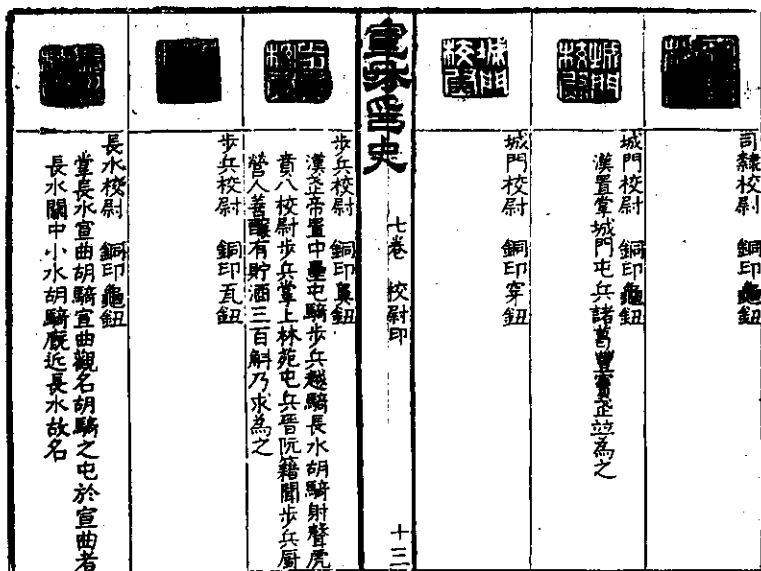 司隸校尉　銅印龜鈕
城門校尉
城門校尉　銅印龜鈕
漢置掌城門屯兵諸葛豐竇武並為之
城門校尉
城門校尉　銅印穿鈕
宣和印史
七卷　校尉印
十三
步兵校尉　銅印鼻鈕
漢武帝置中壘屯騎步兵越騎長水胡騎射聲虎
賁八校尉步兵掌上林苑屯兵晉阮籍聞步兵厨
營人善釀有貯酒三百斛乃求為之
步兵校尉　銅印瓦鈕
長水校尉　銅印龜鈕
掌長水宣曲胡騎宣曲觀名胡騎之屯於宣曲者
長水關中小水胡騎廐近長水故名